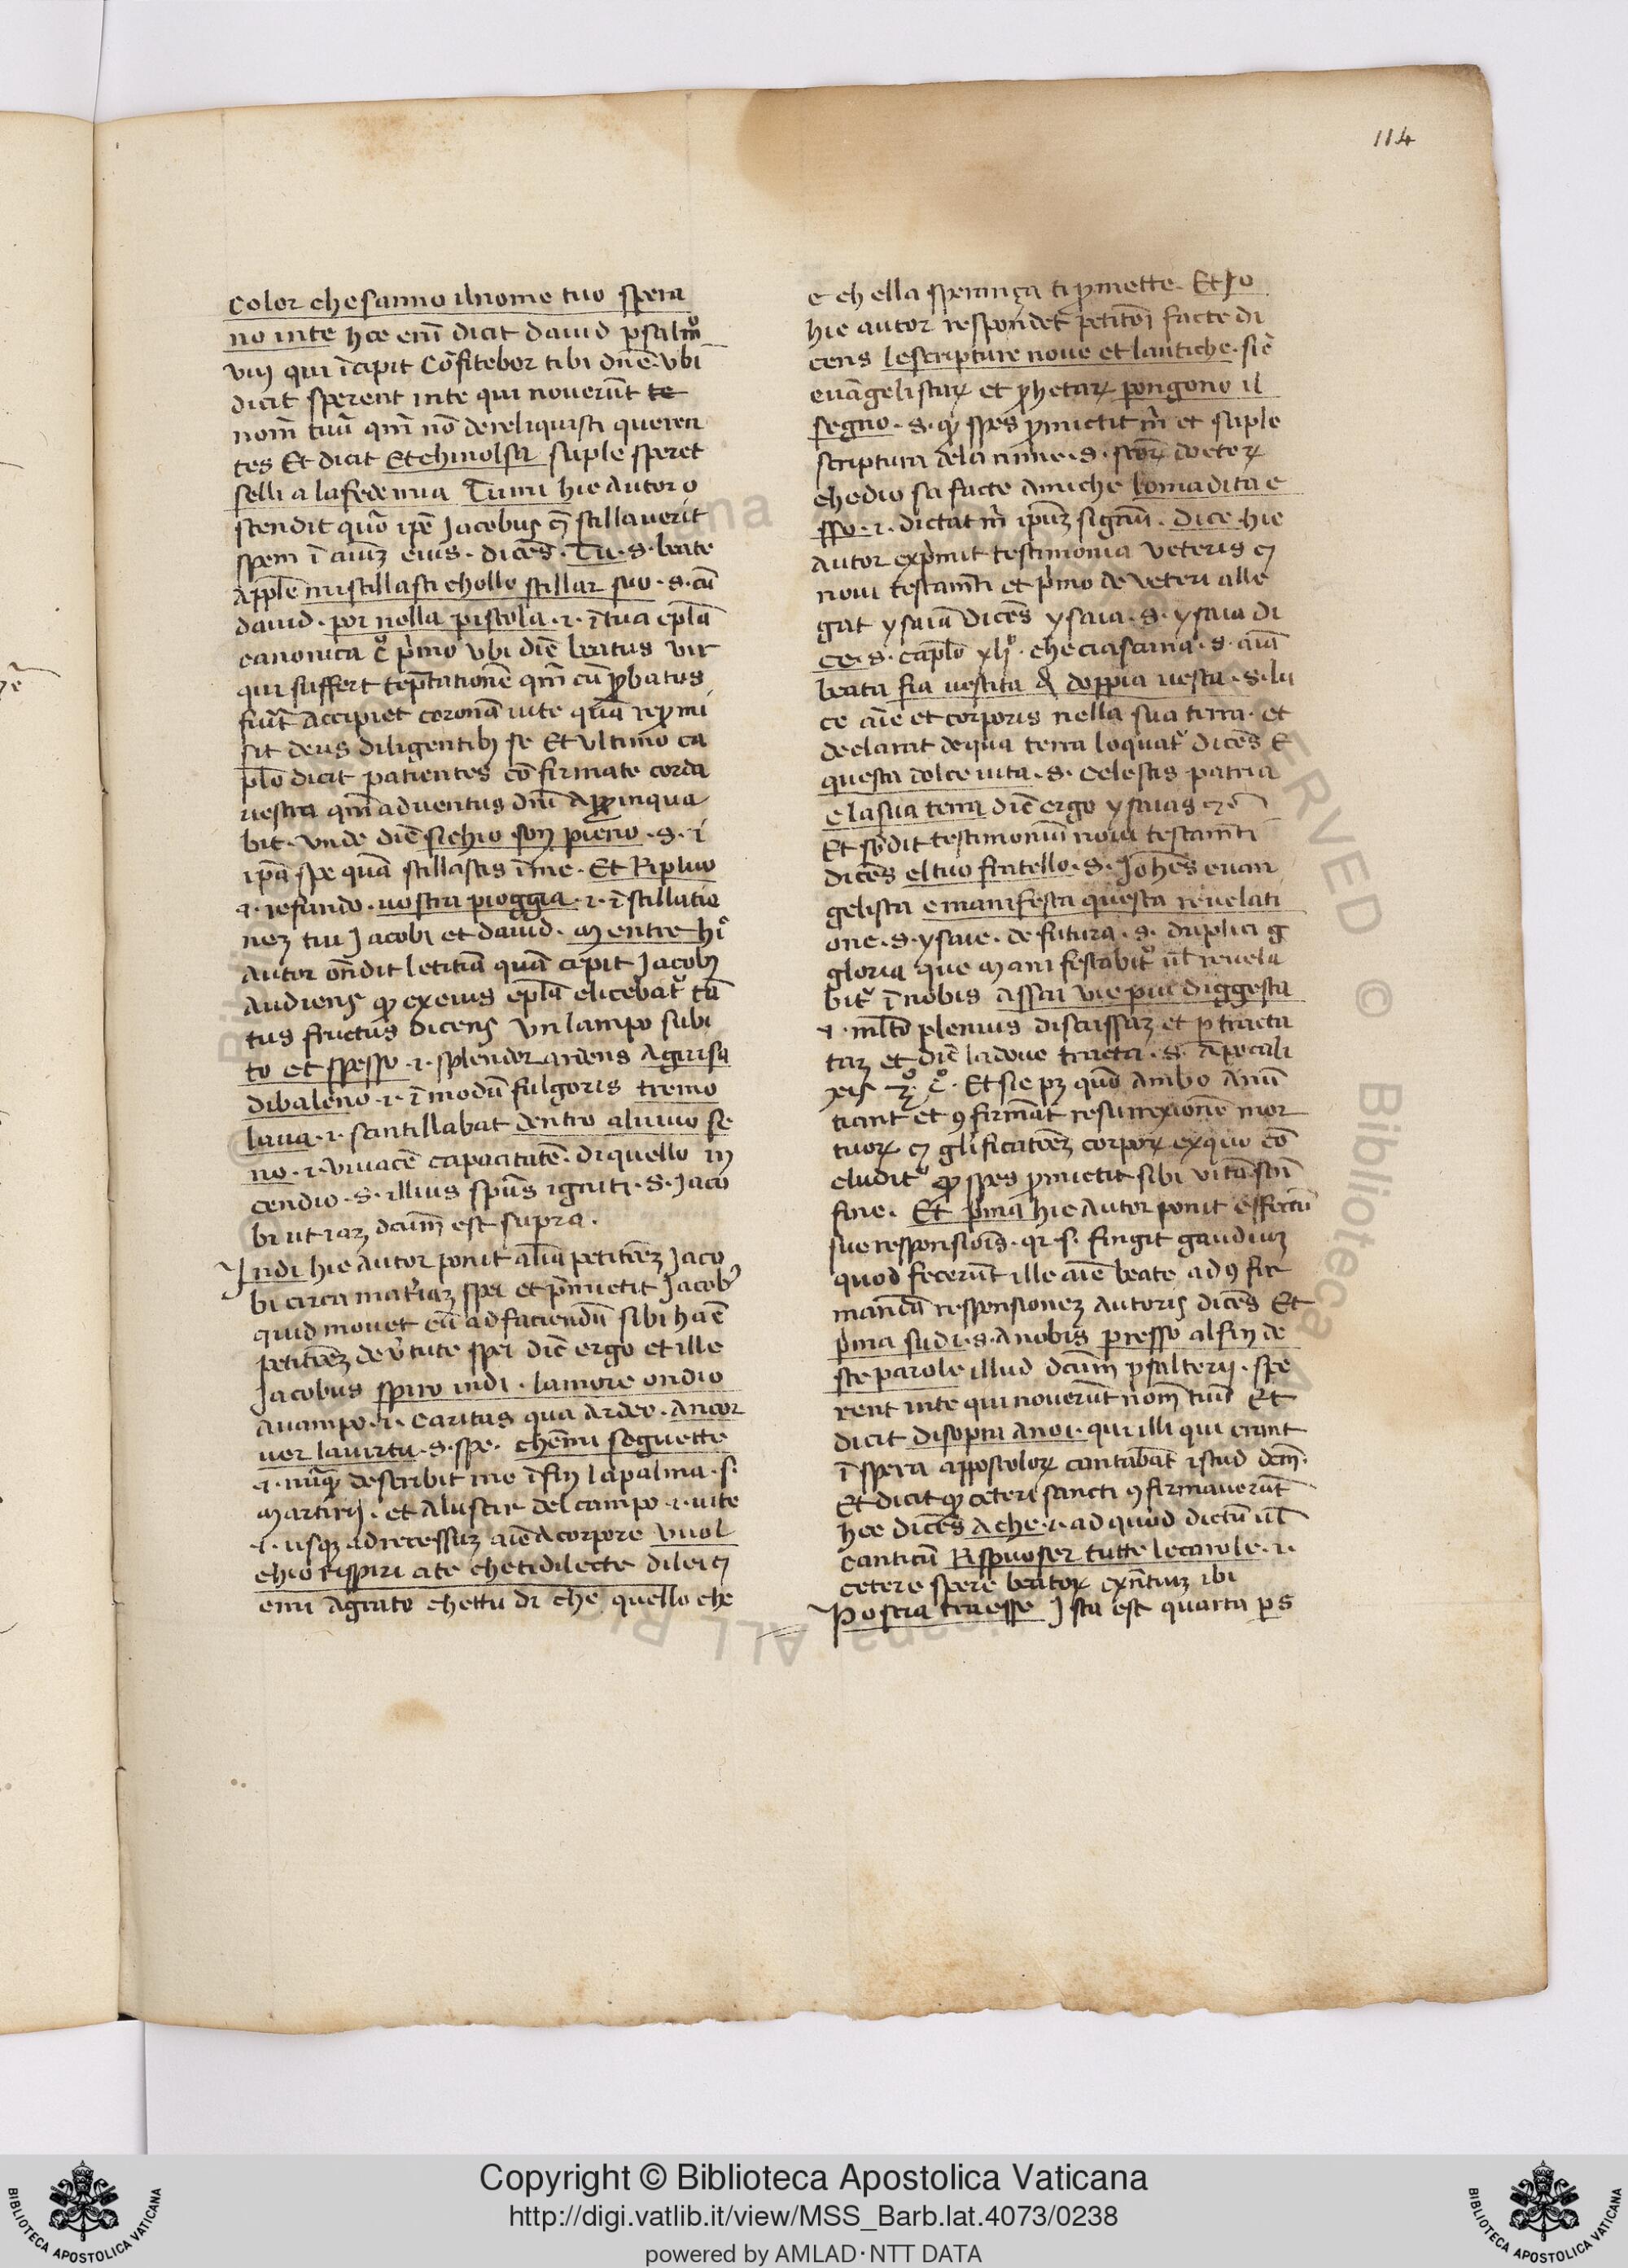 114
color che sanno il nome tuo spera
no in te hec enĩ dicit dauid psalmº
viiij qui ĩcipit Cõfitebor tibi dñe. vbi
dicit sperent in te qui nouerũt te
nom̃ tuũ qm̃ nõ dereliquisti queren
tes Et dicit Et chi nol sa suple speret
selli a la fede mia Tumi hic autor o
stendit quõ ip̃e Jacobus stillauerit
spem ĩ eius. dicẽs. Tu. s. beate
apple mi stillasti chollo stillar suo. s. cũ
dauid. por nella pistola .i. ĩ tua epl̃a
canonica cº pͥmo vbi diĉ beatus vir
qui suffert tẽptationẽ qm̃ cũ ꝓbatus
fiũt accipiet coronã uite quã reꝓmi
sit deus diligentibꝫ se Et vltimo ca
plõ dicit patientes cõfirmate corda
uestra qm̃ aduentus dñi aꝓpinqua
bit. vnde diĉ si chio son pieno. s. ĩ
ip̃a spe quã stillastis ĩ me. Et Ripluo
.i. refundo. uostra pioggia .i. ĩstillatio
neꝫ tui Jacobi et dauid. Mentre hĩ
autor oñdit letitiã quã cepit Jacobꝫ
audiens ꝙ ex eius epl̃a elicebatͬ tã
tus fructus dicens Vn lampo subi
to et spesso .i. splendor ardens Aguisa
di baleno .i. ĩ modũ fulgoris tremo
laua .i. scintillabat dentro al uiuo se
no .i. viuacẽ capacitatẽ. di quello in
cendio. s. illius spũs igniti. s. Jaco
bi ut iaꝫ dcũm est supra.
Indi hic autor ponit aliã petitioẽꝫ Jaco
bi circa materiaꝫ spei et pͥmictit Jacobꝫ
quid mouet eũ ad faciendũ sibi hãc
petitioẽꝫ de vͥtute spei diĉ ergo et ille
Jacobus spiro indi. lamore ondio
auampo .i. caritas qua ardeo. Ancor
uer la uirtu. s. spe. che mi seguette
.i. nũqͣ deseribit me ĩ fin la palma. s.
martirij. et aluscir del campo .i. uite
.i. usqꝫ ad recessuꝫ aĩe a corpore vuol
chio rispiri a te che ti dilecte di lei
emi Agrato chettu di che quello che
e ch ella speranza ti ꝓmette. Et Jo
hic autor respondet petitoĩ facte di
cens le scripture noue et lantiche. siĉ
euãgelistaꝝ et ꝓphetaꝝ pongono il
segno. s. ꝙ spes ꝓmictit m̃ et suple
scriptura dela nime. s. doctoꝝ
che dio sa facte amiche lo madita e
sso .i. dictat m̃ ip̃uꝫ signũ. dice hic
autor expͥmit testimonia veteris
noui testam̃ti et pͥmo de veteri alle
gat ysaiã dicẽs ysaia. s. ysaia di
ce. s. capl̃o xlijº. che ciascuna. s. aĩa
beata fia uestita di doppia uesta. s. lu
ce aĩe et corporis nella sua terra. et
declarat de qua terra loquatͬ dicẽs E
questa dolce uita. s. celestis patria
e la sua terra diĉ ergo ysaias
Et testimoniũ noui testam̃ti
dicẽs el tuo fratello. s. Johẽs euan
gelista e manifesta questa reuelati
one. s. ysaie. de futura. s. duplici g
gloria que manifestabitͬ ul̃ reuela
bitͬ ĩ nobis assai vie piu diggesta
.i. ml̃to plenius discussaꝫ et ꝑ tracta
taꝫ et diĉ la doue tracta. s. Apocali
xis cº. Et sic pꝫ quõ ambo anũ
tiant et ꝯfirmãt resurrexionẽ mor
tuoꝝ glificatioẽꝫ corpoꝝ ex quo cõ
cluditͬ ꝙ spes ꝓmictit sibi vitã
fore. Et pͥma hic Autor ponit effectũ
sue responsiois. qꝛ s. fingit gaudiuꝫ
quod fecerũt ille aĩe beate ad ꝯfir
mandã responsioneꝫ autoris dicẽs Et
pͥma sudi. s. a nobis presso al fin de
ste parole illud dcũm psalterij. spe
rent in te qui nouerũt nom̃ tuũ Et
dicit disopra anoi. qꝛ illi qui erant
ĩ spera appostoloꝝ cantabãt istud dcm̃.
Et dicit ꝙ ceteri sancti ꝯfirmauerũt
hec dicẽs Ache .i. ad quod dictũ ul̃
canticũ Rispuoser tutte le carole .i.
cetere spere beatoꝝ exñtiuꝫ ibi
Poscia tra esse Ista est quarta ps
Copyright © Biblioteca Apostolica Vaticana
http://digi.vatlib.it/view/MSS_Barb.lat.4073/0238
powered by AMLAD·NTT DATA
BIBLIOTECA APOSTOLICA VATICANA
BIBLIOTECA APOSTOLICA VATICANA